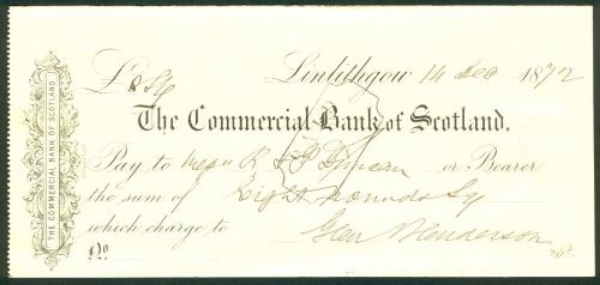 THE COMMERCIAL BANK OF SCOTLAND
£8 Stg Linlithgow 14 Dec 1872
The Commercial Bank of Scotland.
Pay to Messrs R & P Duncan or Bearer
the sum of Eight Pounds Stg
which charge to
Henderson
No.